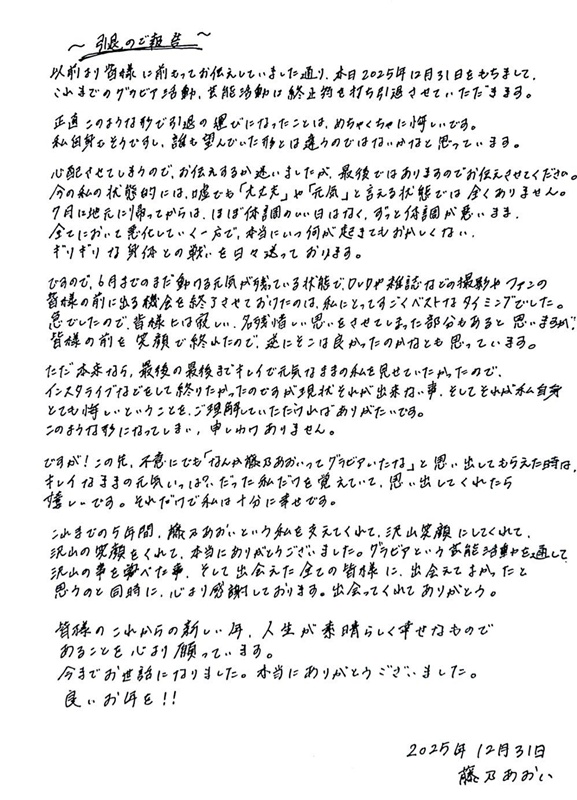 〜引退のご報告〜
以前より皆様に前もってお伝えしていました通り、本日2025年12月31日をもちまして、
これまでのグラビア活動、芸能活動に終止符を打ち引退させていただきます。
正直このような形で引退の運びになったことは、めちゃくちゃに悔しいです。
私自身もそうですし、誰も望んでいた形とは違うのではないかなと思っています。
心配させてしまうので、お伝えするか迷いましたが、最後ではありますのでお伝えさせてください。
今の私の状態的には、嘘でも「大丈夫」や「元気」と言える状態では全くありません。
7月に地元に帰ってからは、ほぼ体調のいい日はなく、ずっと体調が悪いまま、
全てにおいて悪化していく一方で、本当にいつ何が起きてもおかしくない、
ギリギリな身体との戦いを日々送っております。
ですので、6月までのまだ動ける元気が残ている状態で、DVDや雑誌などの撮影やファンの
皆様の前に出る機会を終了させておけたのは、私にとってすごくベストなタイミングでした。
急でしたので、皆様には寂しい、名残惜しい思いをさせてしまった部分もあると思いますが、
皆様の前を笑顔で終れたので、逆にそこは良かったのかなとも思っています。
ただ本来なら、最後の最後までキレイで元気なままの私を見せていたかったので、
インスタライブなどをして終りたかったのですが現状それが出来ない事、そしてそれが私自身
とても悔しいということを、ご理解していただければありがたいです。
このような形になってしまい、申しわけありません。
ですが！この先、不意にでも「なんか藤乃あおいってグラビアいたな」と思い出してもらえた時は、
キレイなままの元気いっぱい？、だった私だけを覚えていて、思い出してくれたら
嬉しいです。それだけで私は十分に幸せです。
これまでの5年間、藤乃あおいという私を支えてくれて、沢山笑顔にしてくれて、
沢山の笑顔をくれて、本当にありがとうございました。グラビアという芸能活動を通して
沢山の事を学べた事、そして出会えた全ての皆様に、出会えてよかったと
思うのと同時に、心より感謝しております。出会ってくれてありがとう。
皆様のこれからの新しい年、人生が素晴らしく幸せなもので
あることを心より願っています。
今までお世話になりました。本当にありがとうございました。
良いお年を！！
2025年12月31日
藤乃あおい